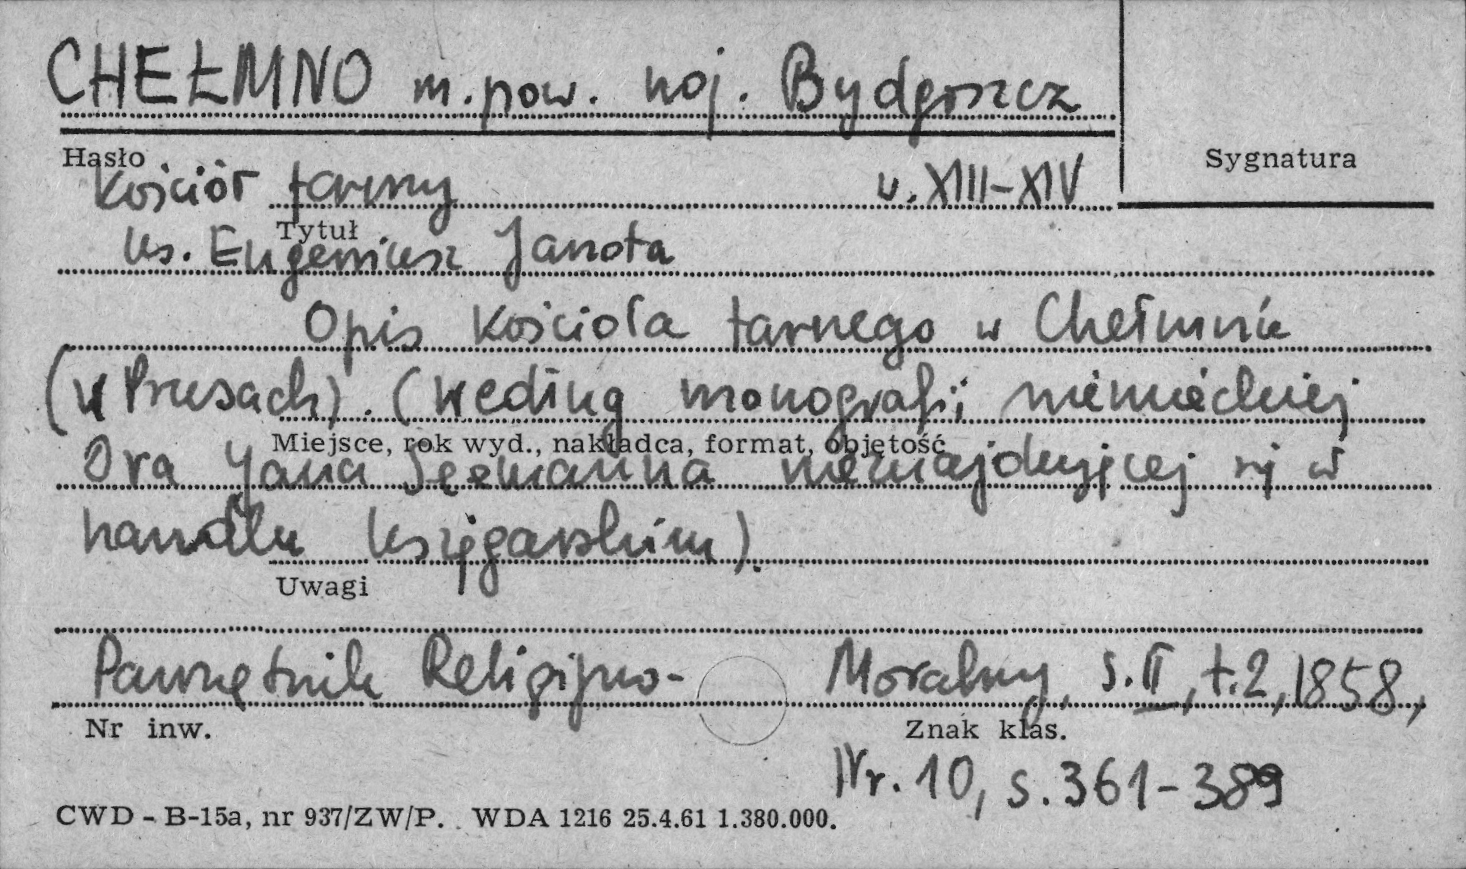 CHEŁMNO m. pow. woj. Bydgoszcz
Hasło
Sygnatura
Kościół farny w. XIII-XIV
Tytuł
ks. Eugeniusz Janota
Opis kościoła farnego w Chełmnie
(w Prusach). (Według monografii niemieckiej
Miejsce, rok wyd., nakładca, format, objętość
Dra Jana nieznajdującej się w
handlu księgarskim).
Uwagi
Pamiętnik Religijno- Moralny, s. II, t. 2, 1858,
Nr inw.
Znak klas.
Nr. 10, s. 361-389
CWD - B-15a, nr 937/ZW/P. WDA 1216 25.4.61 1.380.000.